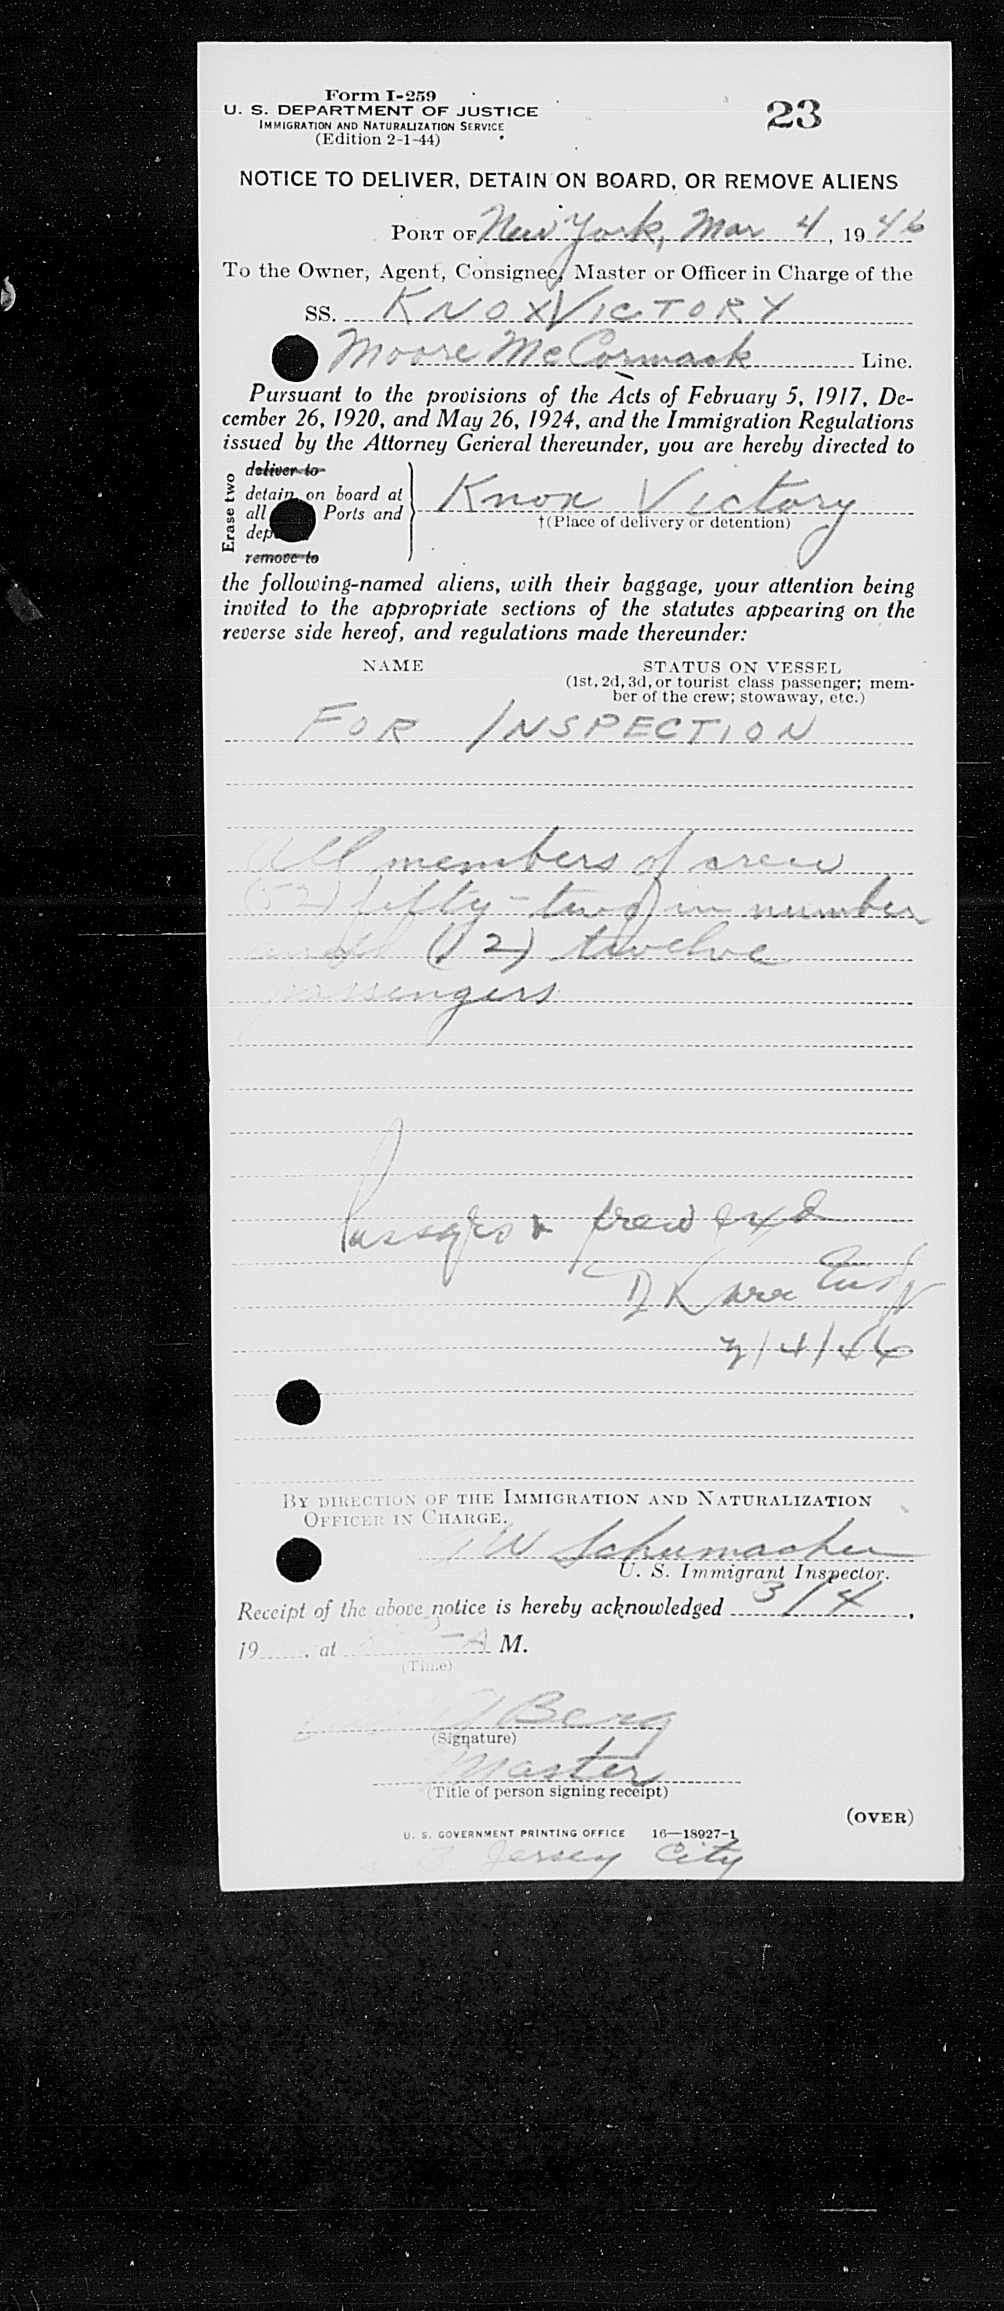 Form I-259
U. S. DEPARTMENT OF JUSTICE
IMMIGRATION AND NATURALIZATION SERVICE
(Edition 2-1-44)
23
NOTICE TO DELIVER, DETAIN ON BOARD, OR REMOVE ALIENS
PORT OF New York, Mar 4, 1946
To the Owner, Agent, Consignee, Master or Officer in Charge of the
SS. KNOX VICTORY
Moore McCormack Line.
Pursuant to the provisions of the Acts of February 5, 1917, De-
cember 26, 1920, and May 26, 1924, and the Immigration Regulations
issued by the Attorney General thereunder, you are hereby directed to
Erase two
deliver to
detain on board at
all Ports and
remove to
Knox Victory
†(Place of delivery or detention)
the following-named aliens, with their baggage, your attention being
invited to the appropriate sections of the statutes appearing on the
reverse side hereof, and regulations made thereunder:
NAME STATUS ON VESSEL
(1st, 2d, 3d, or tourist class passenger; mem-
ber of the crew; stowaway, etc.)
FOR INSPECTION
All members of crew
(52) fifty-two) in number
(12) twelve
passengers
crew exd
3/4/46
BY DIRECTION OF THE IMMIGRATION AND NATURALIZATION
OFFICER IN CHARGE.
W Schumacher
U. S. Immigrant Inspector.
Receipt of the above notice is hereby acknowledged 3/4,
19 , at A M.
(Time)
Berg
(Signature)
Master
(Title of person signing receipt)
(OVER)
U. S. GOVERNMENT PRINTING OFFICE 16—18927-1
Jersey City